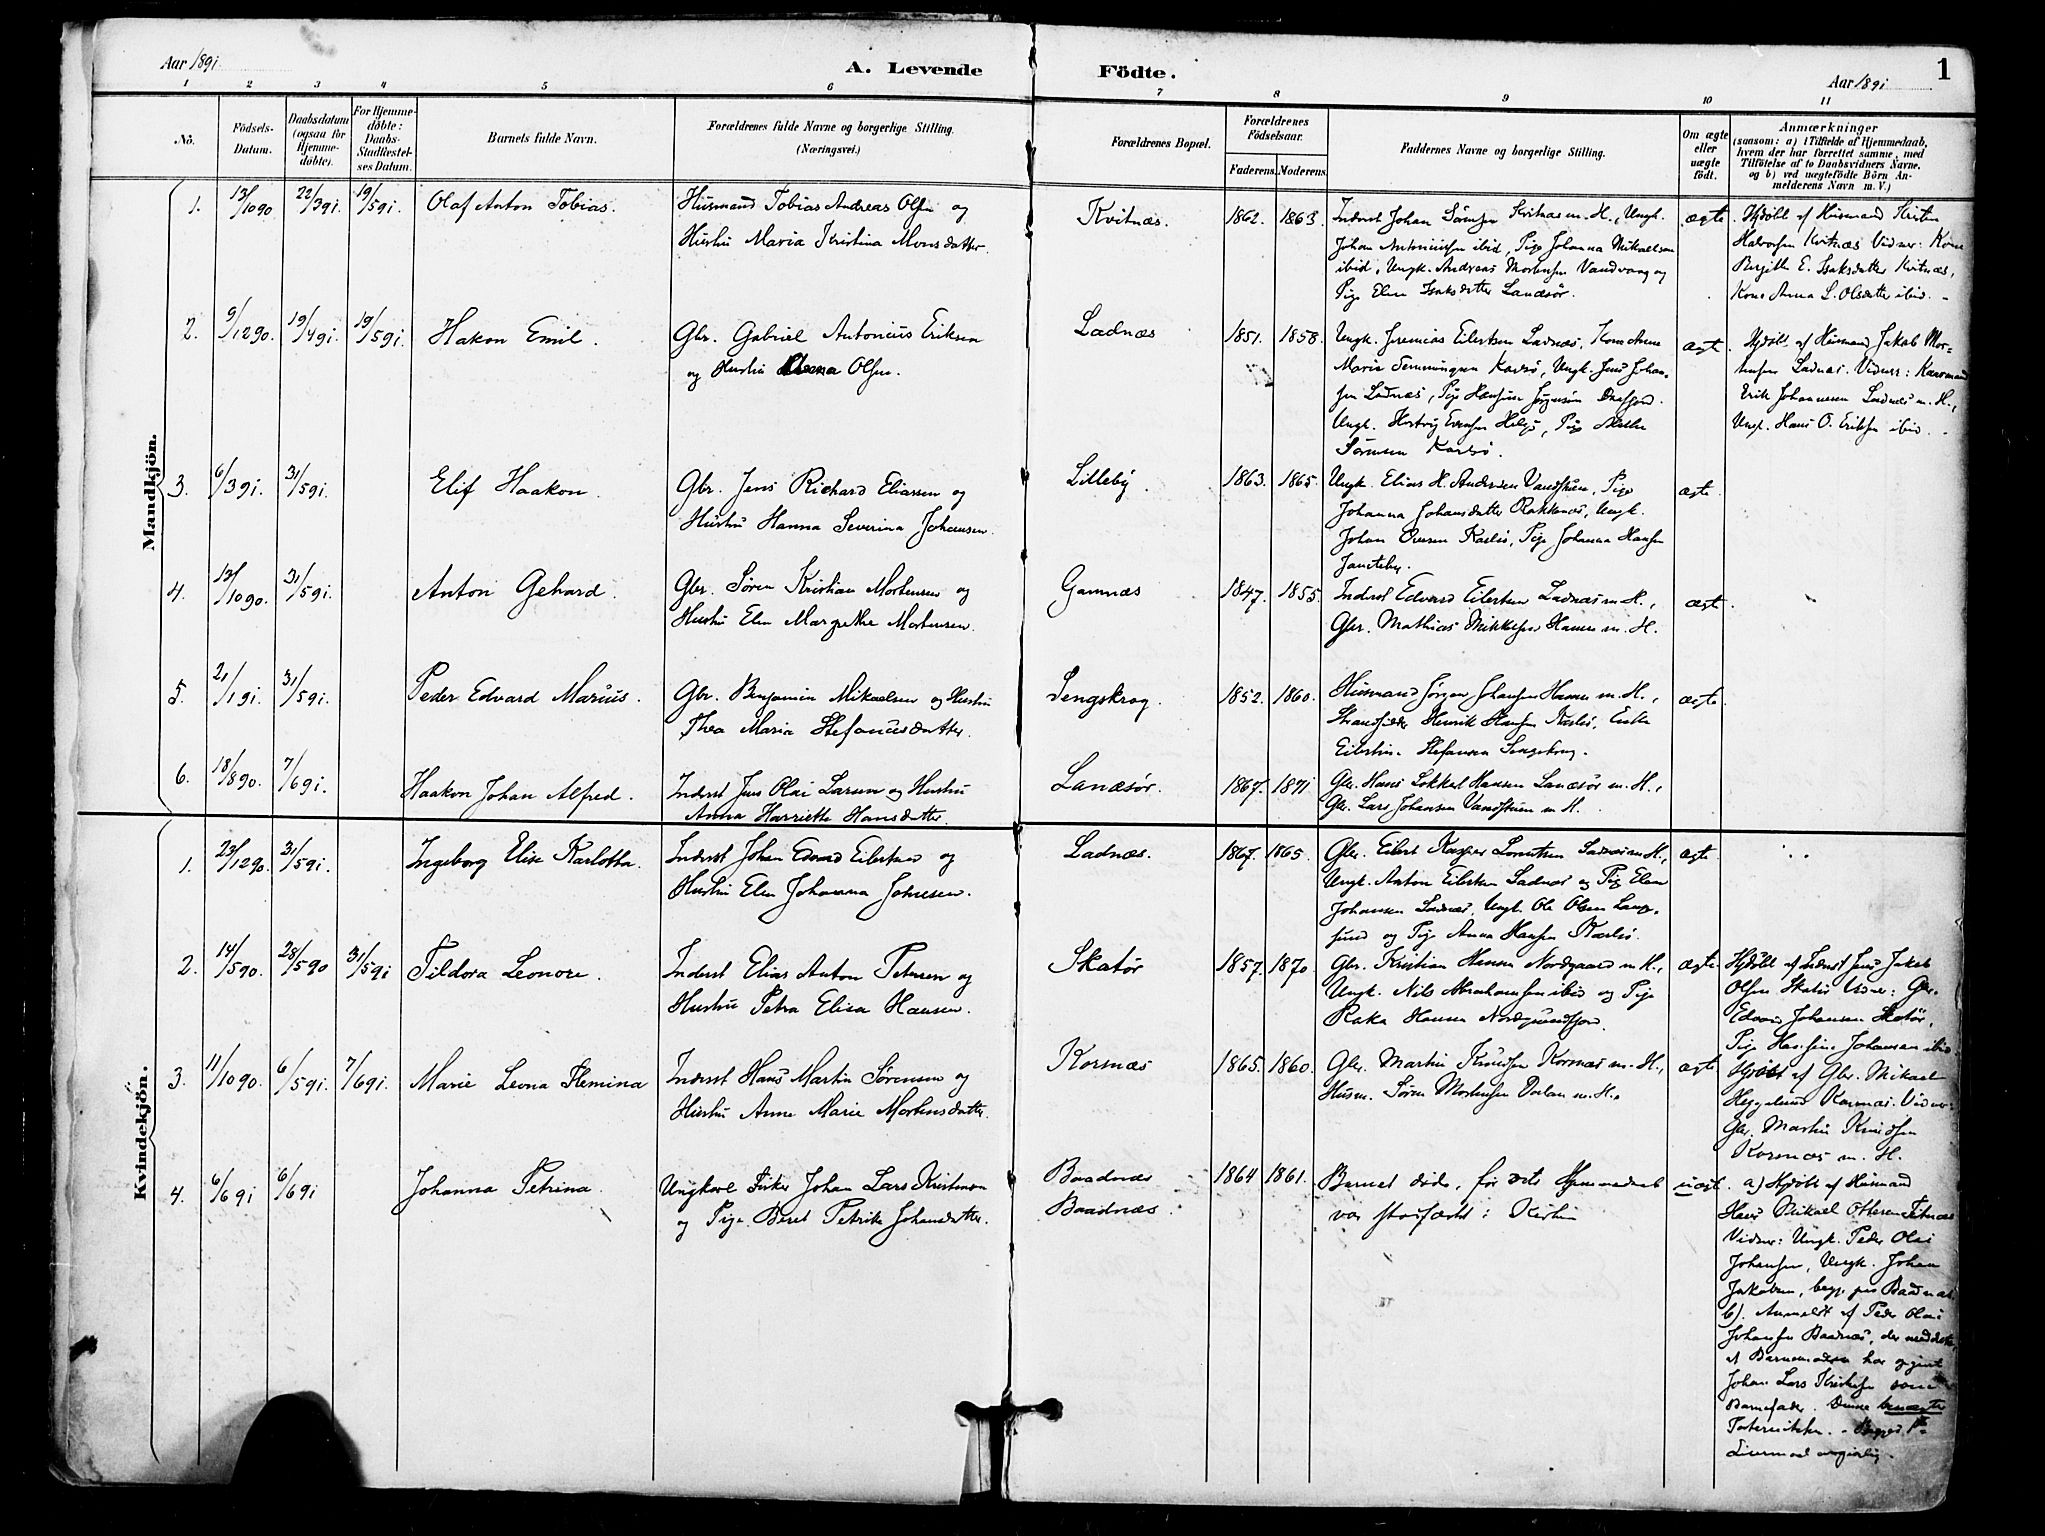 Aar 1891. A. Levende Födte. Aar 1891 1
1 2 3 4 5 6 7 8 9 10 11
No. Födsels-Datum. Daabsdatum (ogsaa for Hjemmedöbte). For Hjemmedöbte: Daabs-Stadfæstelses Datum. Barnets fulde Navn. Forældrenes fulde Navne og borgerlige Stilling. (Næringsvei.) Forældrenes Bopæl. Forældrenes Födselsaar. Faderens. Moderens. Faddernes Navne og borgerlige Stilling. Om ægte eller uægte födt. Anmærkninger (saasom: a) i Tilfælde af Hjemmedaab, hvem der har forrettet samme, med Tilföielse af to Daabsvidners Navne, og b) ved uægtefödte Börn Anmelderens Navn m. V.)
Mandkjön.
1. 13/10 90 22/3 91. 19/5 91. Olaf Anton Tobias. Husmand Tobias Andreas Olsen og Kvitnæs. 1862. 1863. Inderst Johan Kvitnæs m. H., Ungk. ægte Hjdöbt af Husmand
Hustru Maria Kristina Monsdatter. Johan Antoniussen ibid, Pige Johanna Mikaelsen Halvorsen Kvitnæs Vidner: Kone
ibid, Ungk. Andreas Mortensen Vandvaag og Birgitte E. Isaksdatter Kvitnæs,
Pige Elen Isaksdatter Lanæsør. Kone Anna L. Olsdatter ibid.
2. 9/12 90. 19/4 91. 19/5 91. Hakon Emil. Gbr. Gabriel Antonius Eriksen Ladnæs 1851. 1858. Ungk. Jeremias Eilertsen Ladnæs, Kone Anne ægte Hjdöbt af Husmand Jakob Mor-
og Hustru Anna Olsen. Maria Karlsö, Ungk. Jens Johan- tensen Ladnæs. Vidner:
sen Ladnæs, Pige Jørgensen Erik Johannesen Ladnæs m. H.,
Ungk. Hartvig Evensen Helgö, Pige Ungk. Hans O. Eriksen ibid.
Sörensen Karlsö.
3. 6/3 91. 31/5 91. Elif Haakon. Gbr. Jens Richard Eliassen og Lilleby. 1863. 1865. Ungk. Elias H. Andersen Vandstuen, Pige ægte.
Hustru Hanna Severina Johansen. Johanna Johansdatter Ungk.
Johan Ovesen Karlsö, Pige Johanna Hansen
4. 13/10 90. 31/5 91. Anton Gehard. Gbr. Søren Kristian Mortensen og Gamnæs 1847. 1855. Inderst Edvard Eilertsen Ladnæs m. H., ægte.
Hustru Elen Margrethe Mortensen. Gbr. Mathias Mikkelsen Hamre m. H.
5. 21/1 91. 31/5 91. Peder Edvard Marius. Gbr. Benjamin Mikaelsen og Hustru Sengskrog. 1852. 1860. Husmand Jörgen Johansen Hamre m. H., ægte
Thea Maria Stefanusdatter. Henrik Hansen Karlsö, Enke
Stefansen Sengskrog.
6. 18/8 90. 7/6 91. Haakon Johan Alfred. Inderst Jens Olai Larsen og Hustru Lanæsør. 1867. 1871 Gbr. Hans Lökkel Hansen Lanæsør m. H.,
Anna Harriette Hansdatter. Gbr. Lars Johansen Vandstuen m. H.
Kvindekjön.
1. 23/12 90. 31/5 91. Ingeborg Elise Karlotta. Inderst Johan Edvard Eilertsen og Ladnæs. 1867. 1865. Gbr. Eilert Kasper Lorentsen Ladnæs m. H., ægte
Hustru Elen Johanna Johnsen. Ungk. Anton Eilertsen Ladnæs og Pige Elen
Johansen Ladnæs, Ungk. Ole Olsen Lang-
sund og Pige Anna Hansen Karlsö.
2. 14/5 90. 28/5 90 31/5 91 Tildora Leonore. Inderst Elias Anton Petersen og Skatør 1857. 1870. Gbr. Kristian Hansen Nordgaard m. H., ægte. Hjdöbt af Inderst Jens Jakob
Hustru Petra Elisa Hansen. Ungk. Nils Abrahamsen ibid og Pige Olsen Skatör Vidner: Gbr.
Raka Hansen Edvard Johansen Skatør,
Pige Hansine Johansen ibid
3. 11/10 90. 6/5 91. 7/6 91. Marie Leona Flemina Inderst Hans Martin Sørensen og Kornæs 1865. 1860. Gbr. Martin Knudsen Kornæs m. H., ægte Hjdöbt af Gbr. Mikael
Hustru Anne Marie Mortensdatter. Husm. Søren Mortensen Dalan m. H. Heggelund Kornæs. Vidner:
Gbr. Martin Knudsen
Kornæs m. H.
4. 6/6 91 6/6 91 Johanna Petrina. Ungkarl Fisker Johan Lars Kristensen Baadnæs 1864 1861. Barnet döde, för dets Hjemmedaab uægt. a) Hjdöbt af Husmand
og Pige Beret Petrikke Johansdatter. Baadnæs. var stadfæstet i Kirken Hans Mikael Ottesen
Vidner: Ungk. Peder Olai
Johansen, Ungk. Johan
Jakobsen, begge paa Baadnæs.
b). Anmeldt af Peder Olai
Johansen Baadnæs, der meddelte
at Barnemoderen har opgivet
Johan Lars Kristensen som
Barnefader. Denne benægter